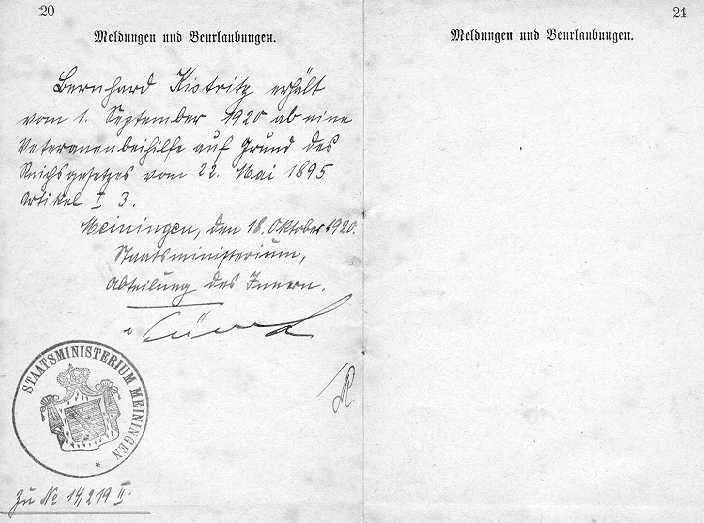 20
Meldungen und Beurlaubungen.
Bernhard Kistritz erhält
vom 1. September 1920 ab eine
Veteranenbeihilfe auf Grund des
Reichsgesetzes vom 22. Mai 1895
Artikel I 3.
Meiningen, den 18. Oktober 1920.
Staatsministerium,
Abteilung des Innern.
STAATSMINISTERIUM MEININGEN
Zu No 14,219 II.
21
Meldungen und Beurlaubungen.